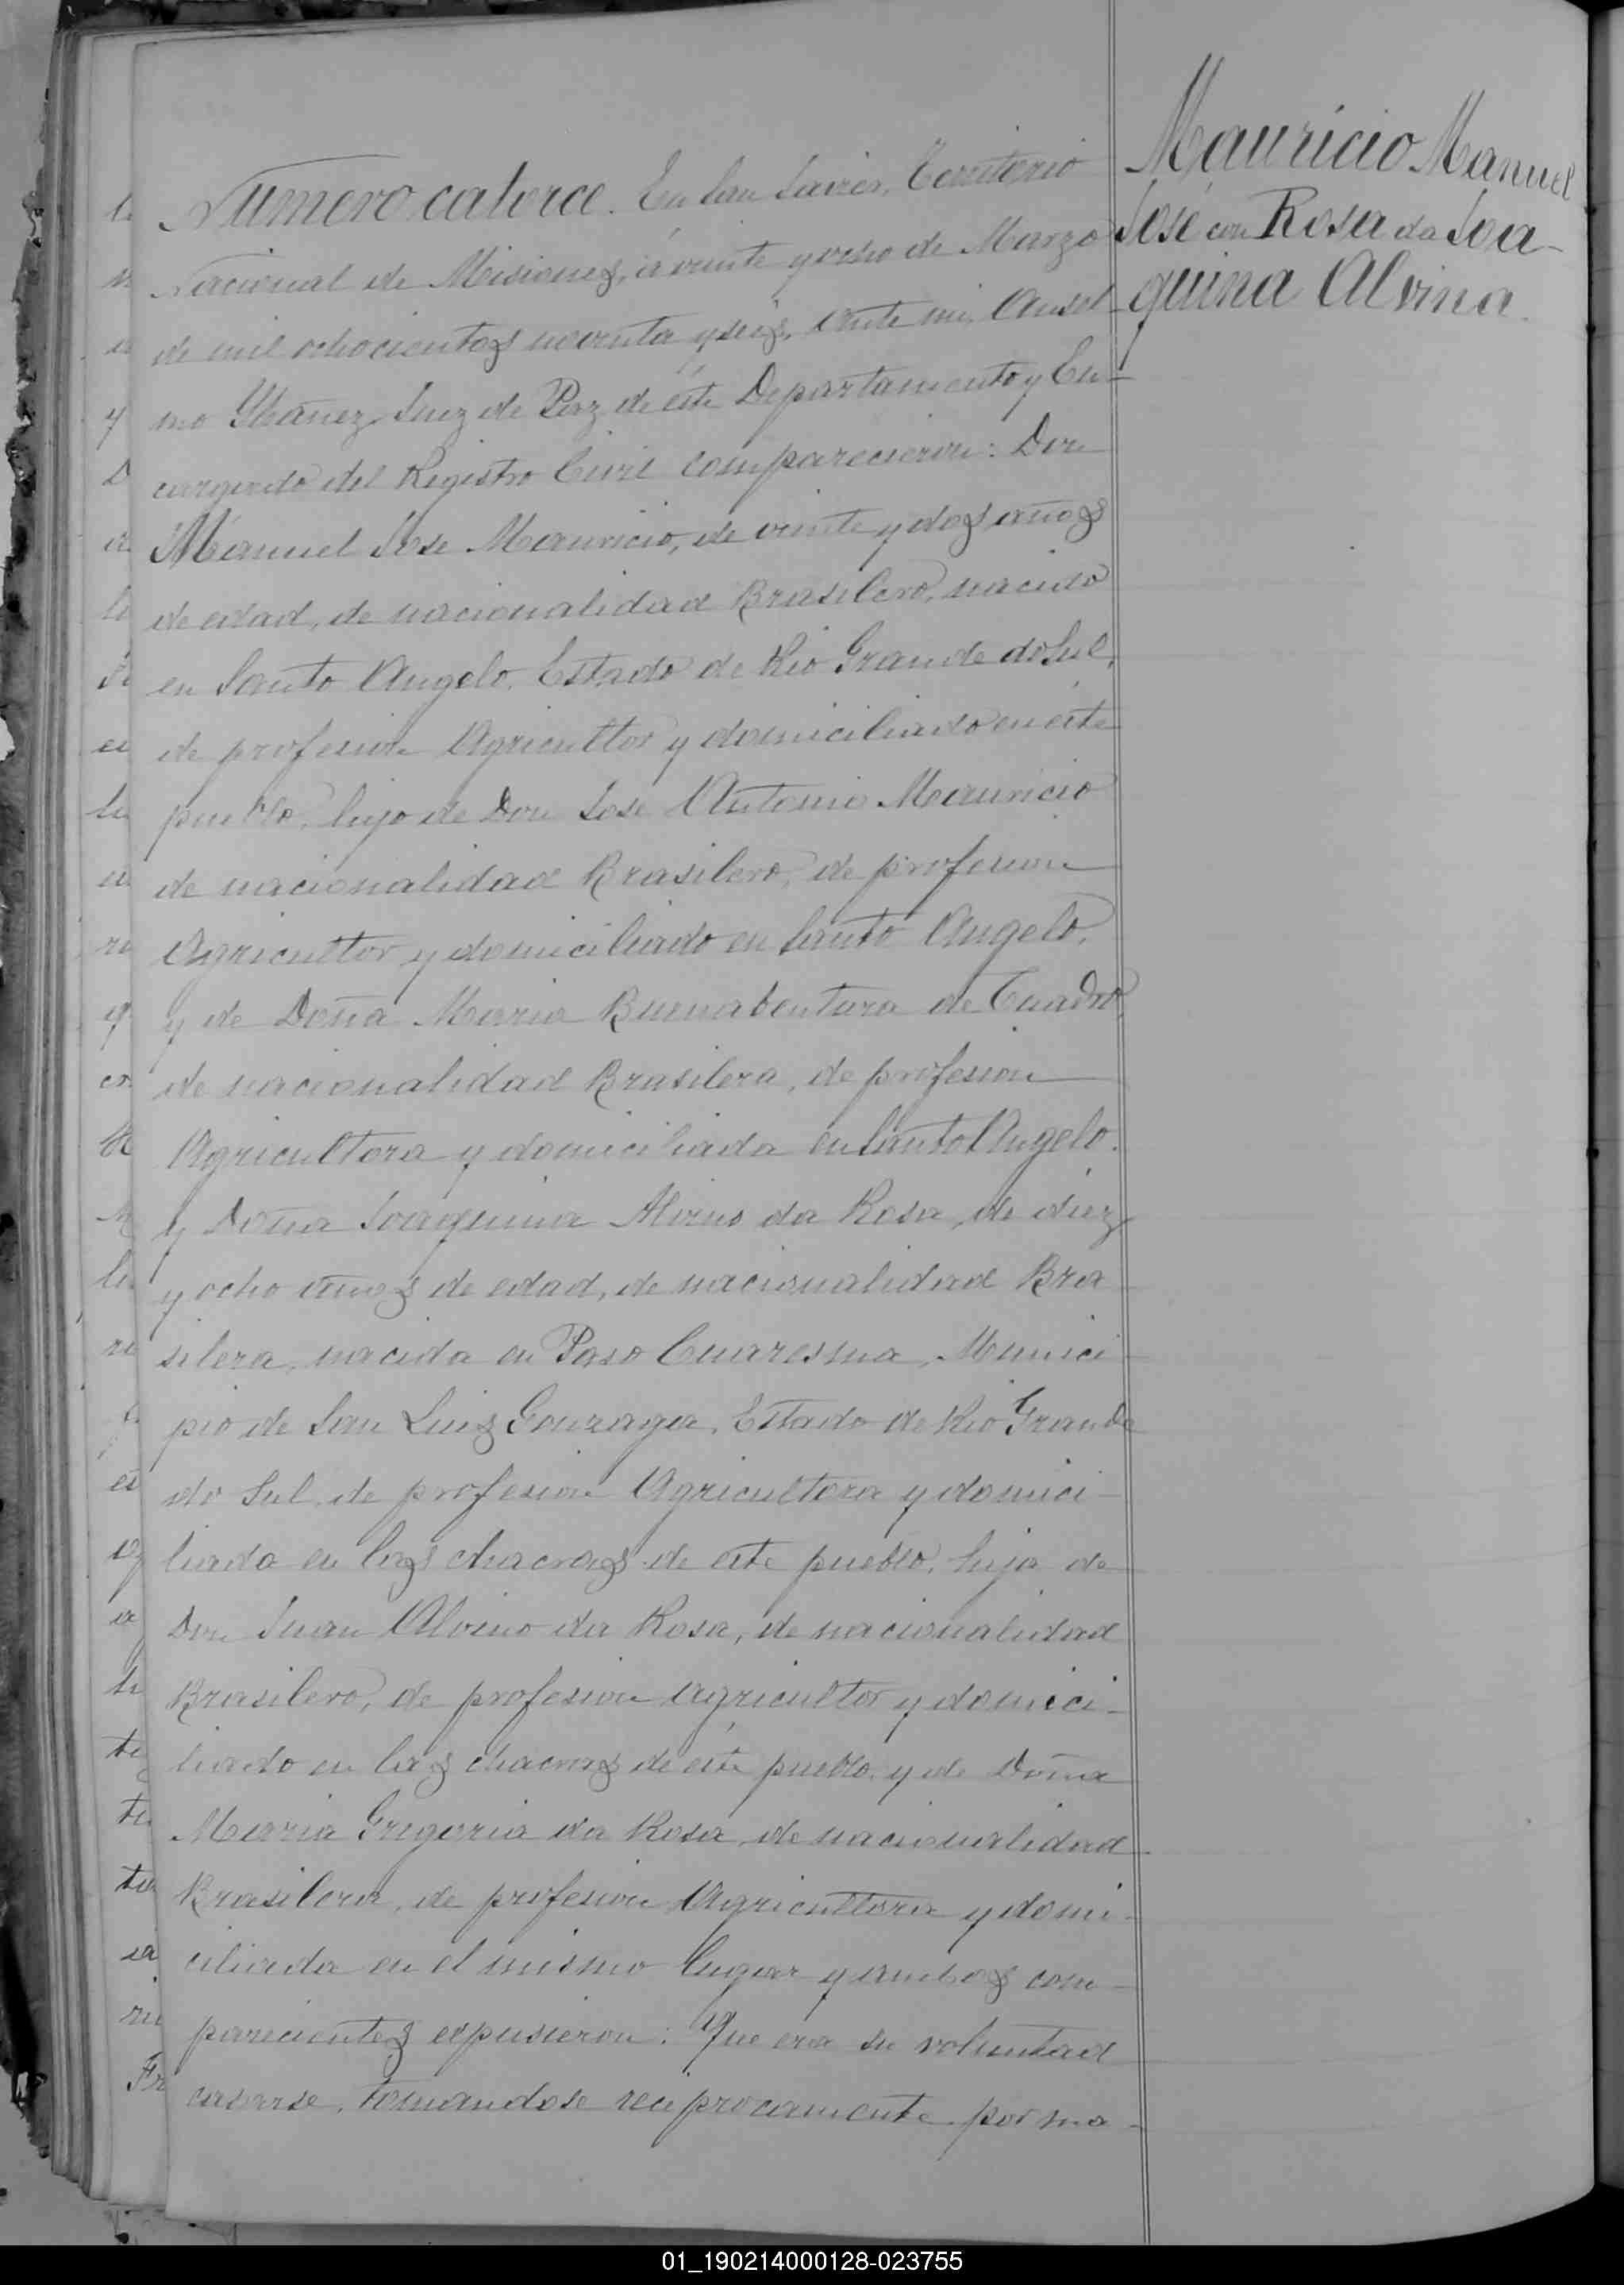 Mauricio Manuel
José con Rosa da Joa-
quina Alvina.
Numero catorce. En San Javier, Territorio
Nacional de Misiones, á veinte y ocho de Marzo
de mil ochocientos noventa y seis, ante mi, Ansel-
mo Ybañez, Juez de Paz de éste Departamento y En-
cargado del Registro Civil comparecieron: Don
Manuel José Mauricio, de veinte y dos años
de edad, de nacionalidad Brasilero, nacido
en Santo Angelo, Estado de Rio Grande do Sul,
de profesion Agricultor y domiciliado en éste
pueblo, hijo de Don José Antonio Mauricio
de nacionalidad Brasilero, de profesion
Agricultor y domiciliado en Santo Angelo,
y de Doña Maria Buenabentura de Cuadro,
de nacionalidad Brasilera, de profesion
Agricultora y domiciliada en Santo Angelo.
y Doña Joaquina Alvino da Rosa, de diez
y ocho años de edad, de nacionalidad Bra-
silera, nacida en Paso Cuaresma, Munici-
pio de San Luis Gonzaga, Estado de Rio Grande
do Sul, de profesion Agricultora y domici-
liada en las chacras de éste pueblo, hija de
Don Juan Alvino da Rosa, de nacionalidad
Brasilero, de profesion Agricultor y domici-
liado en las chacras de éste pueblo, y de Doña
Maria Gregoria da Rosa, de nacionalidad
Brasilera, de profesion Agricultora y domi-
ciliada en el mismo lugar y ambos com-
parecientes expusieron: Que era su voluntad
casarse, tomandose reciprocamente por ma-
01_190214000128-023755